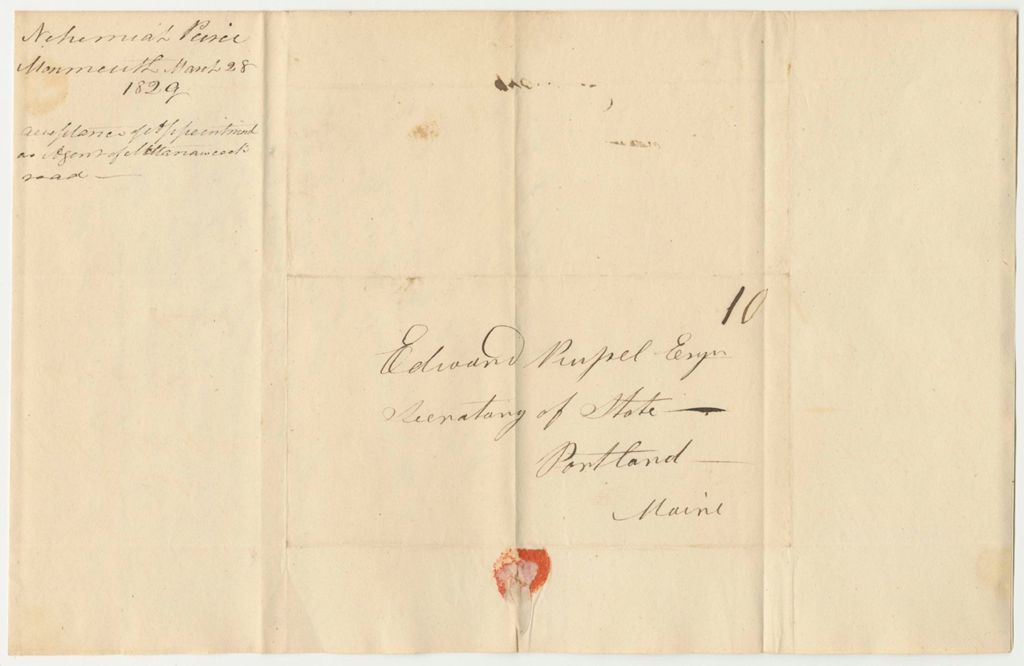 Nehemiah Peirce
Monmouth March 28
1829
acceptance of Appointment
as Agent of Mattanawcook
road —
10
Edward Russel Esqr
Secratary of State —
Portland —
Maine